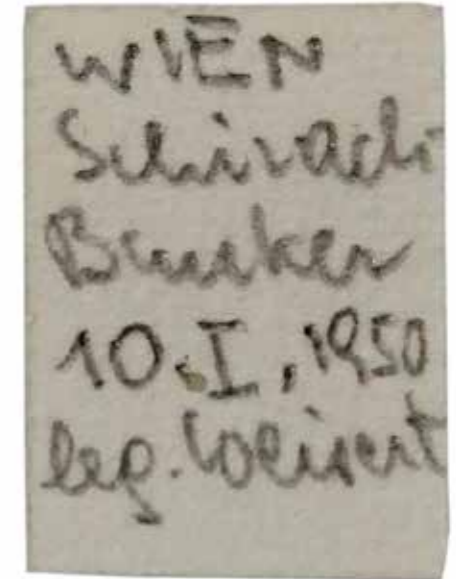 WIEN
Schirach-
Bunker
10.I.1950
leg. Weirert